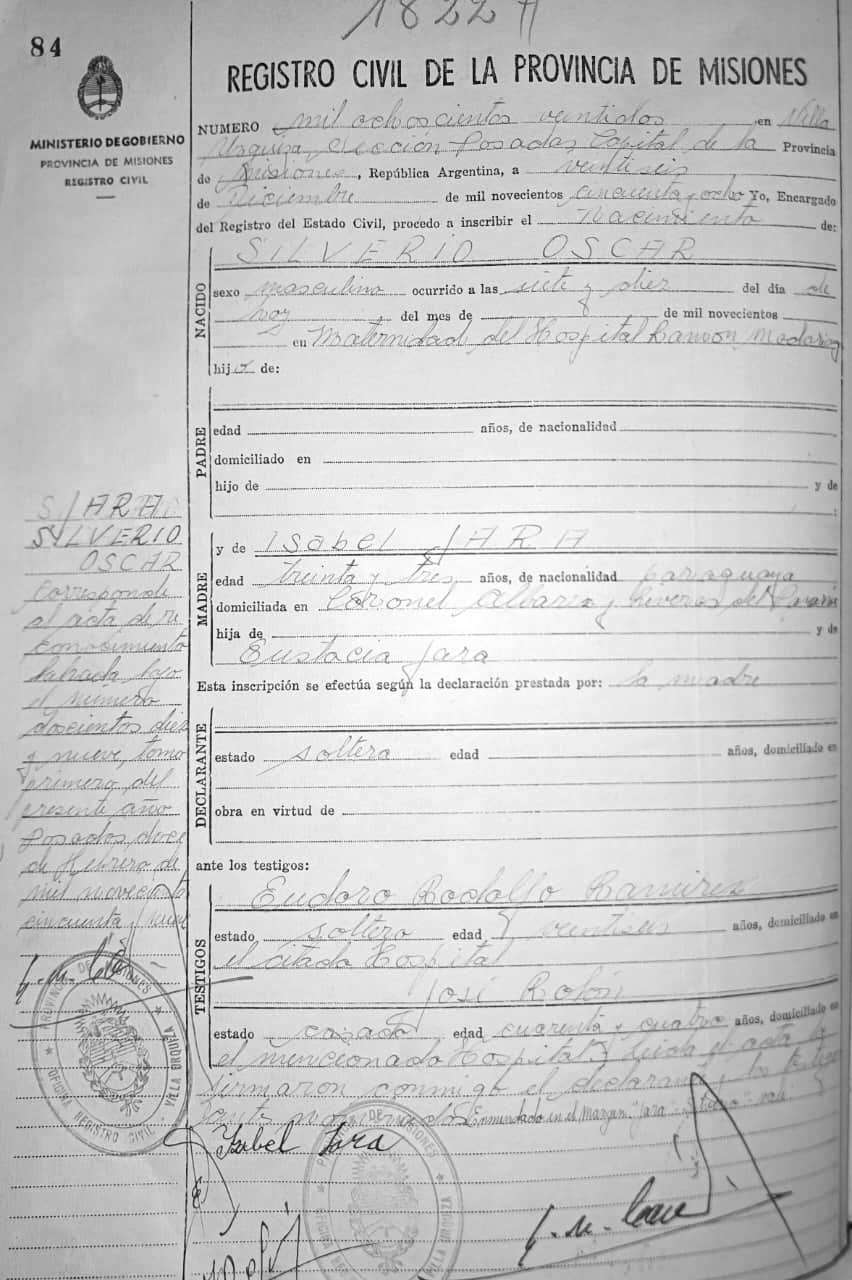 1822 A
84
REGISTRO CIVIL DE LA PROVINCIA DE MISIONES
MINISTERIO DE GOBIERNO
PROVINCIA DE MISIONES
REGISTRO CIVIL
NUMERO mil ochoscientos veintidos en Villa
Urquiza, Sección Posadas Capital de la Provincia
de Misiones, República Argentina, a veintiseis
de Diciembre de mil novecientos cincuenta y ocho Yo, Encargado
del Registro del Estado Civil, procedo a inscribir el Nacimiento de:
SILVERIO OSCAR
NACIDO
sexo masculino ocurrido a las siete y diez del día de
hoy, del mes de de mil novecientos
en Maternidad del Hospital Ramon Madariag
hijo de:
PADRE
edad años, de nacionalidad
domiciliado en
hijo de y de
:
MADRE
y de Isabel JARA
edad treinta y tres años, de nacionalidad paraguaya
domiciliada en Coronel Alvarez y Riveras del Paraná
hija de y de
Eustacia Jara
Esta inscripción se efectúa según la declaración prestada por: la madre
DECLARANTE
estado soltera edad años, domiciliado en
obra en virtud de
ante los testigos:
TESTIGOS
Eudoro Rodolfo Ramirez
estado soltero edad veintiseis años, domiciliado en
el citado Hospital
José Rolón
estado casado edad cuarenta y cuatro años, domiciliado en
el mencionado Hospital y leida el acta la
firmaron conmigo el declarante y los testigos
Enmendado en el Margen "Jara" vale
Isabel Jara
JARA
SILVERIO
OSCAR
Corresponde
al acta de re
conocimiento
labrada bajo
el número
doscientos diez
y nueve, tomo
primero del
presente año
Posadas doce
de Febrero de
mil novecientos
cincuenta y nueve
PROVINCIA DE MISIONES
OFICINA REGISTRO CIVIL - VILLA URQUIZA
PROVINCIA DE MISIONES
OFICINA REGISTRO CIVIL - VILLA URQUIZA